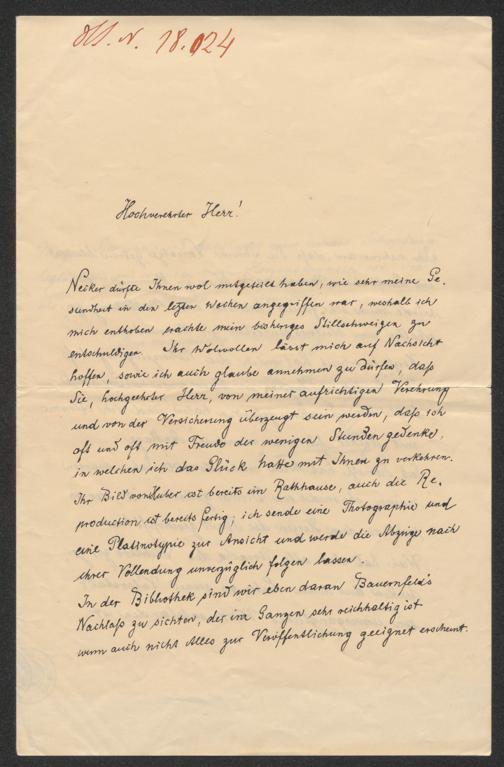 H. I. N. 18.024
Hochverehrter Herr!
Necker dürfte Ihnen wol mitgeteilt haben, wie sehr meine Ge-
sundheit in den letzten Wochen angegriffen war, weshalb ich
mich enthoben erachte mein bisheriges Stillschweigen zu
entschuldigen. Ihr Wolwollen lässt mich auf Nachsicht
hoffen, sowie ich auch glaube annehmen zu dürfen, daß
Sie, hochgeehrter Herr, von meiner aufrichtigen Verehrung
und von der Versicherung überzeugt sein werden, daß ich
oft und oft mit Freude der wenigen Stunden gedenke,
in welchen ich das Glück hatte mit Ihnen zu verkehren.
Ihr Bild von Huber ist bereits im Rathhause, auch die Re-
production ist bereits fertig; ich sende eine Photographie und
eine Platinotypie zur Ansicht und werde die Abzüge nach
ihrer Vollendung unverzüglich folgen lassen.
In der Bibliothek sind wir eben daran Bauernfeld's
Nachlaß zu sichten, der im Ganzen sehr reichhaltig ist
wenn auch nicht Alles zur Veröffentlichung geeignet erscheint.